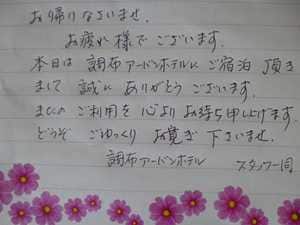 お帰りなさいませ.
お疲れ様でございます.
本日は 調布アーバンホテルに ご宿泊 頂き
まして 誠に ありがとう ございます.
またの ご利用を 心より お待ち申し上げます.
どうぞ ごゆっくり お寛ぎ 下さいませ.
調布アーバンホテル スタッフ一同